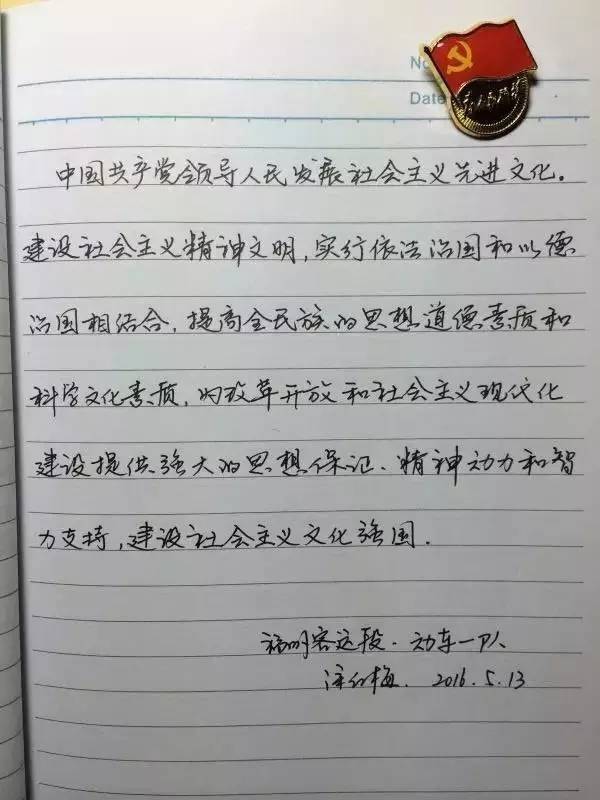 No
Date
为人民服务
中国共产党领导人民发展社会主义先进文化。
建设社会主义精神文明,实行依法治国和以德
治国相结合,提高全民族的思想道德素质和
科学文化素质,为改革开放和社会主义现代化
建设提供强大的思想保证、精神动力和智
力支持,建设社会主义文化强国.
福州客运段.动车一队
红梅. 2016.5.13